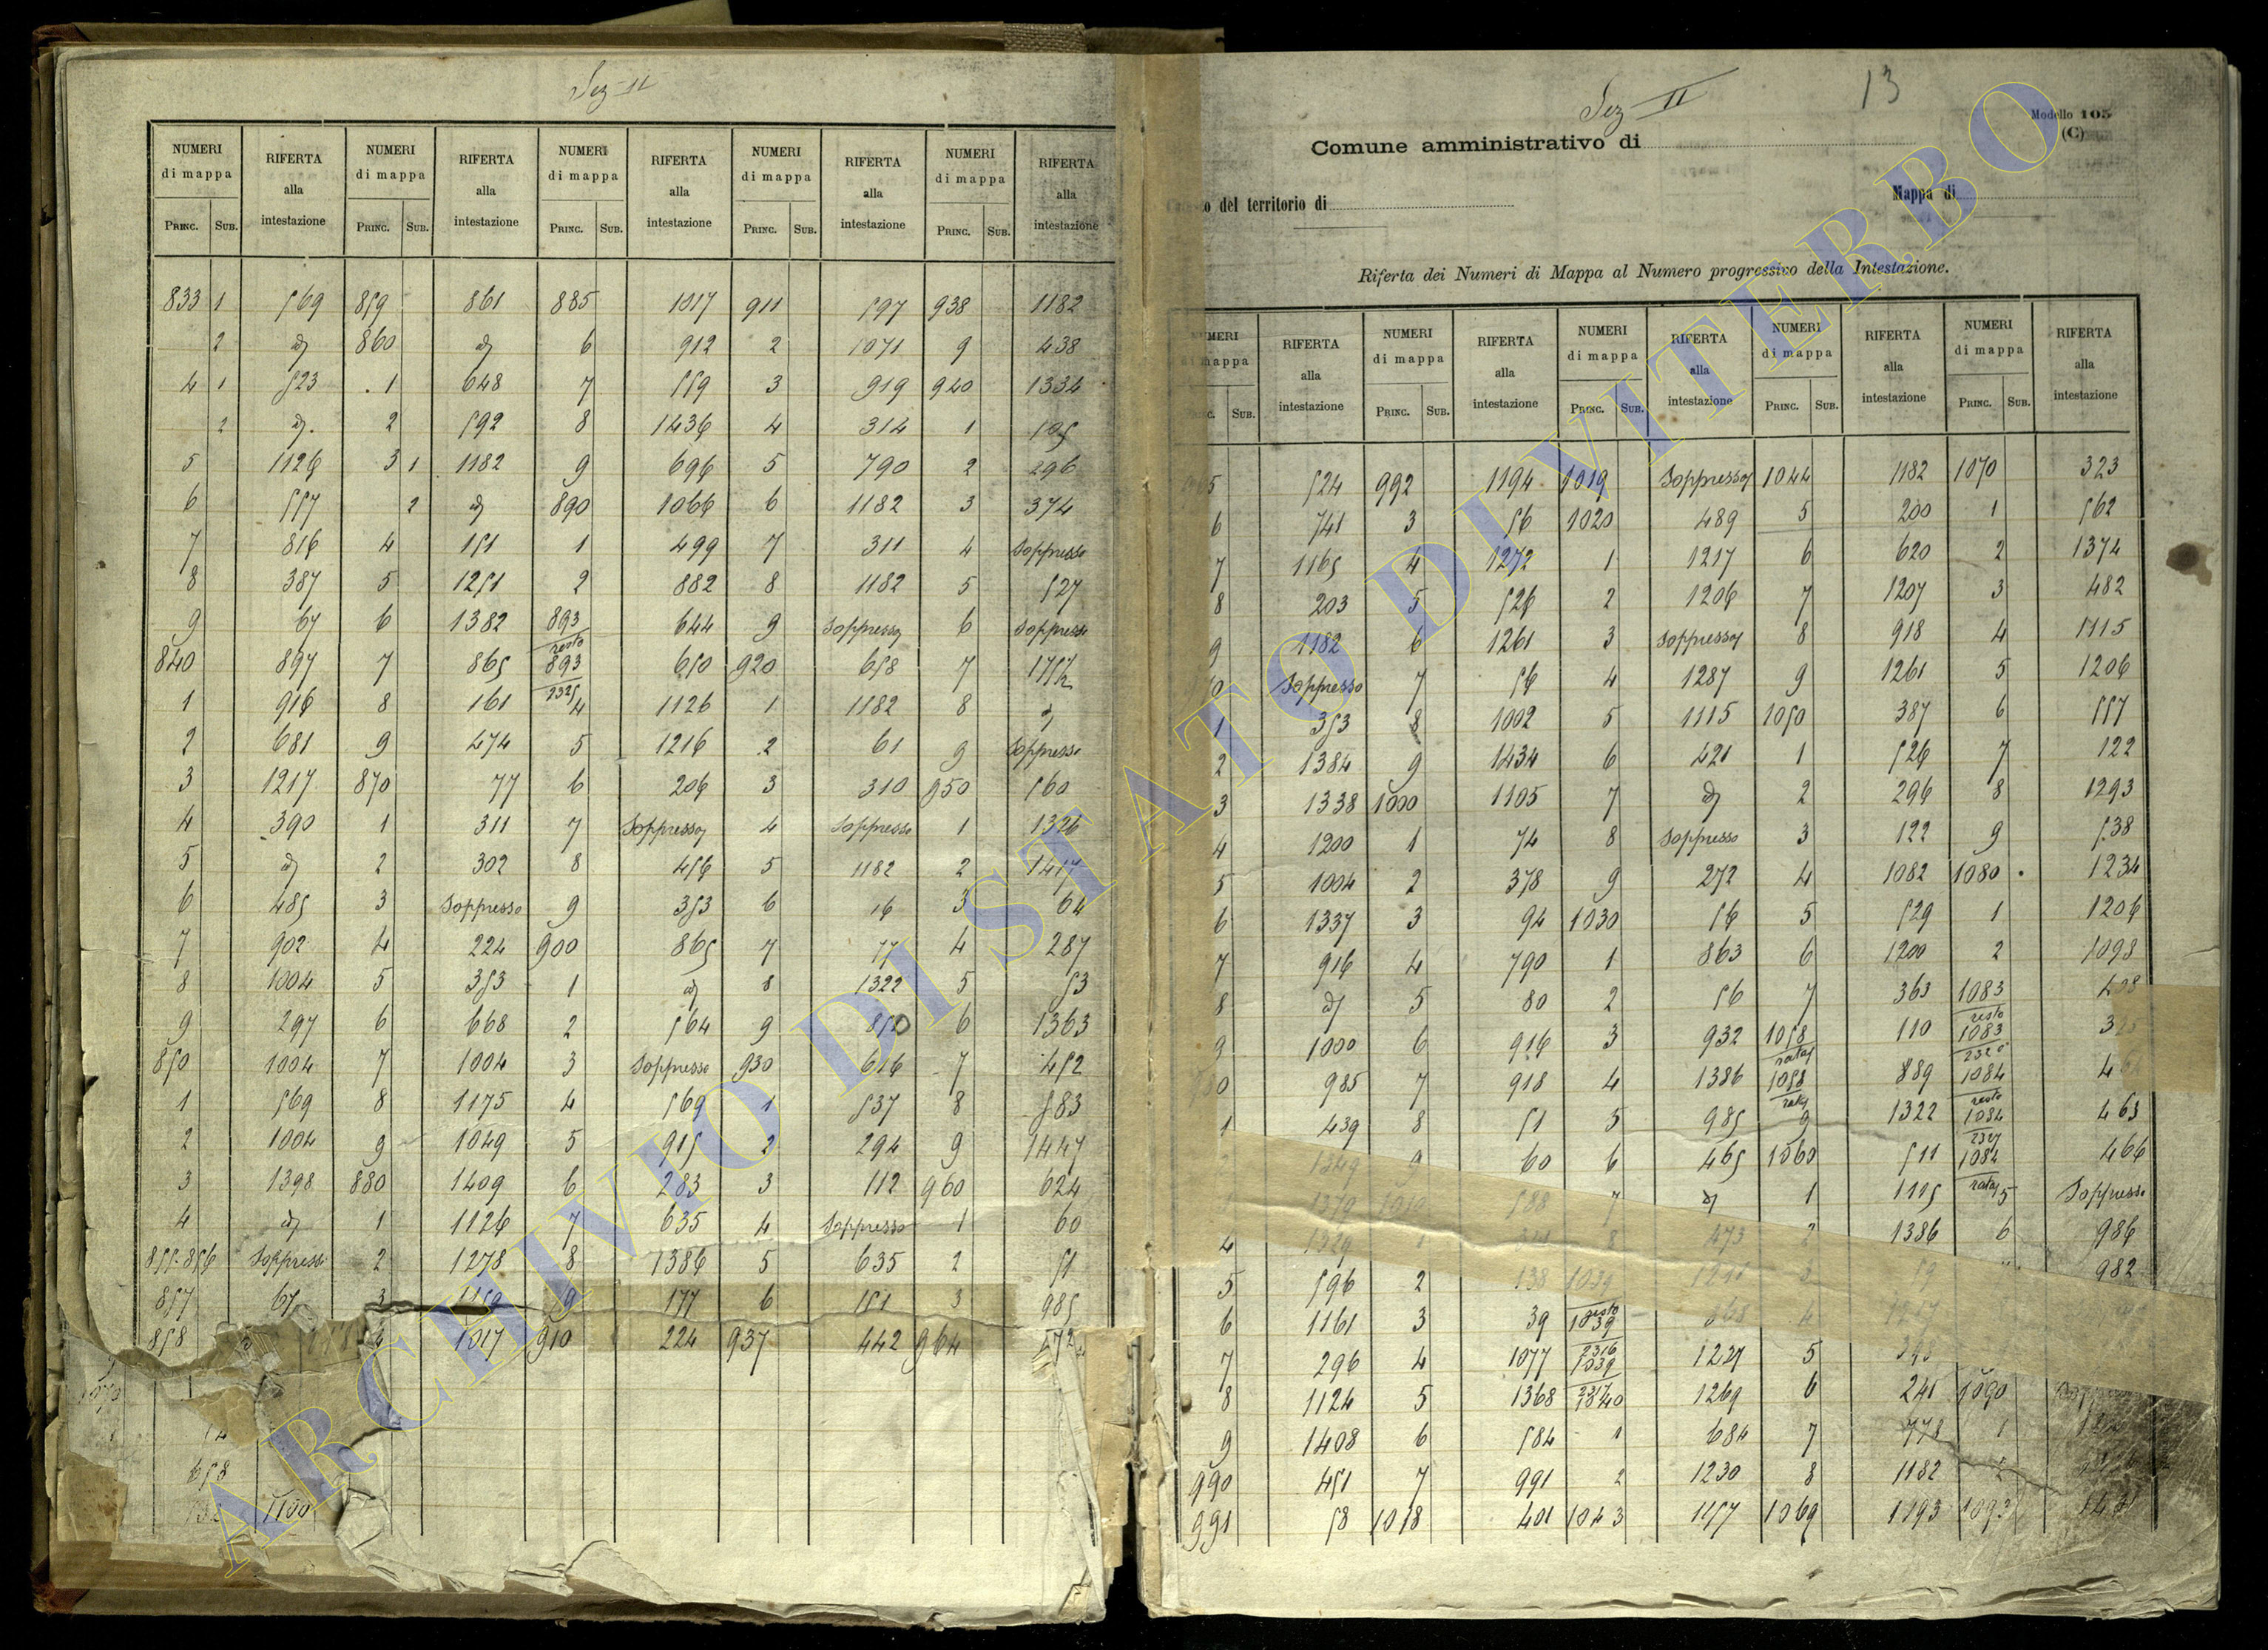 Sez II
NUMERI di mappa RIFERTA alla intestazione NUMERI di mappa RIFERTA alla intestazione NUMERI di mappa RIFERTA alla intestazione NUMERI di mappa RIFERTA alla intestazione NUMERI di mappa RIFERTA alla intestazione
PRINC. SUB. PRINC. SUB. PRINC. SUB. PRINC. SUB. PRINC. SUB.
833 1 569 859 861 885 1017 911 597 938 1182
2 d 860 d 6 912 2 1071 9 438
4 1 523 1 648 7 559 3 919 940 1334
2 d. 2 592 8 1436 4 314 1 105
5 1126 3 1 1182 9 696 5 790 2 296
6 557 2 d 890 1066 6 1182 3 374
7 816 4 151 1 499 7 311 4 Soppresso
8 387 5 1251 2 882 8 1182 5 527
9 67 6 1382 893 resto 644 9 Soppresso 6 Soppresso
840 897 7 865 893 2325 650 920 658 7
1 916 8 161 4 1126 1 1182 8 d
2 681 9 474 5 1216 2 61 9 Soppresso
3 1217 870 77 6 206 3 310 950 560
4 390 1 311 7 Soppresso 4 Soppresso 1 1326
5 d 2 302 8 456 5 1182 2 1417
6 485 3 Soppresso 9 353 6 16 3 64
7 902 4 224 900 865 7 77 4 287
8 1004 5 353 1 d 8 1322 5 53
9 297 6 668 2 564 9 6 1363
850 1004 7 1004 3 Soppresso 930 616 7 452
1 569 8 1175 4 569 1 537 8 583
2 1004 9 1049 5 915 2 294 9 1447
3 1398 880 1409 6 283 3 112 960 624
4 d 1 1126 7 635 4 Soppresso 1 60
855-856 Soppressi 2 1278 8 1386 5 635 2 51
857 67 3 1159 9 177 6 151 3 985
858 4 1017 910 224 937 442 964
658
1100
Sez II
13
Modello 105
(C)
Comune amministrativo di
del territorio di Mappa di
Riferta dei Numeri di Mappa al Numero progressivo della Intestazione.
NUMERI di mappa RIFERTA alla intestazione NUMERI di mappa RIFERTA alla intestazione NUMERI di mappa RIFERTA alla intestazione NUMERI di mappa RIFERTA alla intestazione
SUB. PRINC. SUB. PRINC. SUB. PRINC. SUB. PRINC. SUB.
5 524 992 1194 1019 Soppresso 1044 1182 1070 323
6 741 3 56 1020 489 5 200 1 562
7 1165 4 1272 1 1217 6 620 2 1374
8 203 5 526 2 1206 7 1207 3 482
9 1182 6 1261 3 Soppresso 8 918 4 1115
Soppresso 7 56 4 1287 9 1261 5 1206
1 353 8 1002 5 1115 1050 387 6 557
2 1384 9 1434 6 421 1 526 7 122
3 1338 1000 1105 7 d 2 296 8 1293
4 1200 1 74 8 Soppresso 3 122 9 538
5 1004 2 378 9 272 4 1082 1080 1234
6 1337 3 94 1030 56 5 529 1 1206
7 916 4 790 1 863 6 1200 2 1098
8 d 5 80 2 56 7 363 1083 resto
9 1000 6 916 3 932 1058 rata 110 1083
985 7 918 4 1386 1058 rata 889 1084 resto
1 439 8 51 5 985 9 1322 1084 2327 463
1349 9 60 6 465 1060 511 1084 rata 466
1379 1010 588 7 d 1 1115 5 Soppresso
4 1329 1 8 473 2 1386 6 986
5 596 2 138 1039 resto 982
6 1161 3 39 1039 2316
7 296 4 1077 1039 1237 5
8 1124 5 1368 1040 1269 6 241 1090
9 1408 6 584 1 684 7 778 1
990 451 7 991 2 1230 8 1182 2
991 58 1018 401 1043 1157 1069 1193 1093
ARCHIVIO DI STATO DI VITERBO